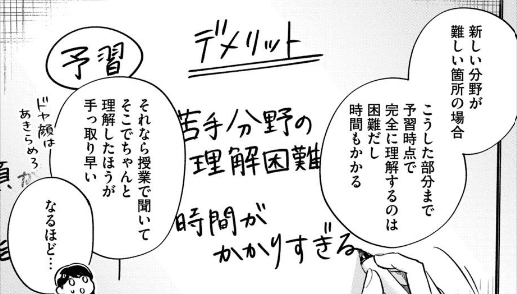 新しい分野が
難しい箇所の場合
こうした部分まで
予習時点で
完全に理解するのは
困難だし
時間もかかる
デメリット
予習
苦手分野の
理解困難
時間が
かかりすぎる
それなら授業で聞いて
そこでちゃんと
理解したほうが
手っ取り早い
ドヤ顔は
あきらめろ
なるほど…